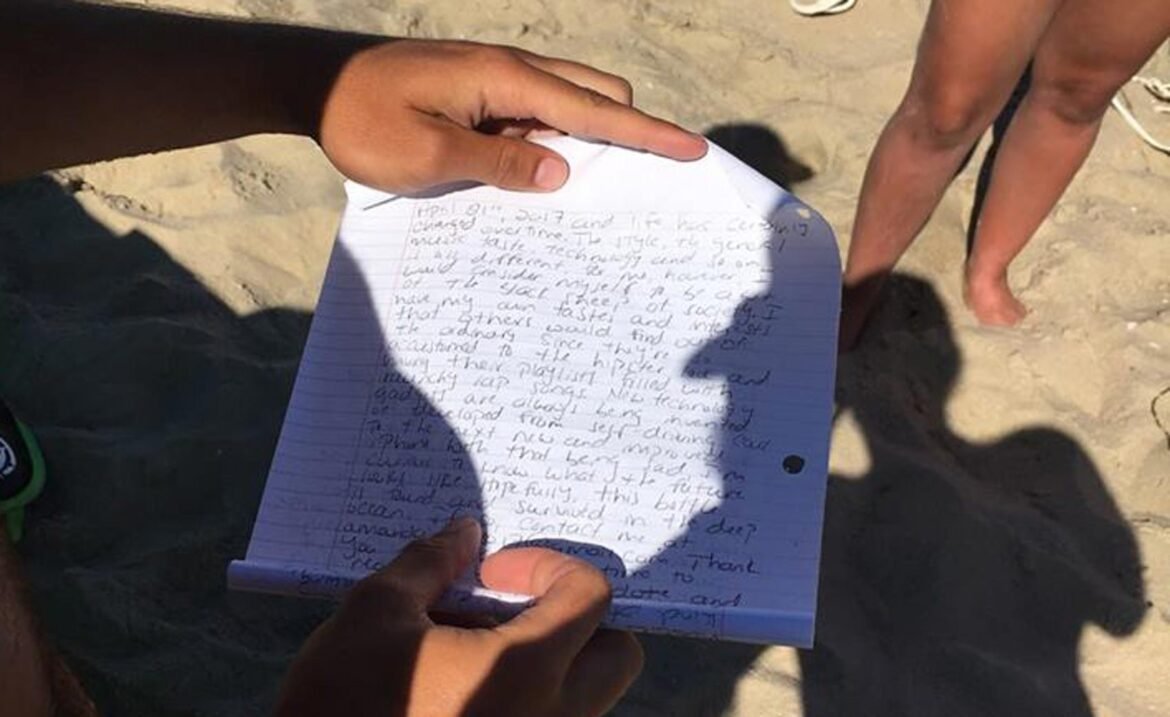 April 21st, 2017 and life has certainly
changed overtime. The style, the general
music taste, technology and so on
is all different. To me, however I
would consider myself to be a
of the black sheeps of society. I
have my own tastes and interests
that others would find out of
the ordinary since they're so
accustomed to the hipster and
having their playlists filled with
raunchy rap songs. New technology
gadgets are always being invented
or developed from self driving cars
to the next new and improved
iphone. With that being said, I'm
curious to know what the future
looks like. Hopefully, this bottle
is found and survived in the deep
ocean. contact me at
Thank
you time to
and